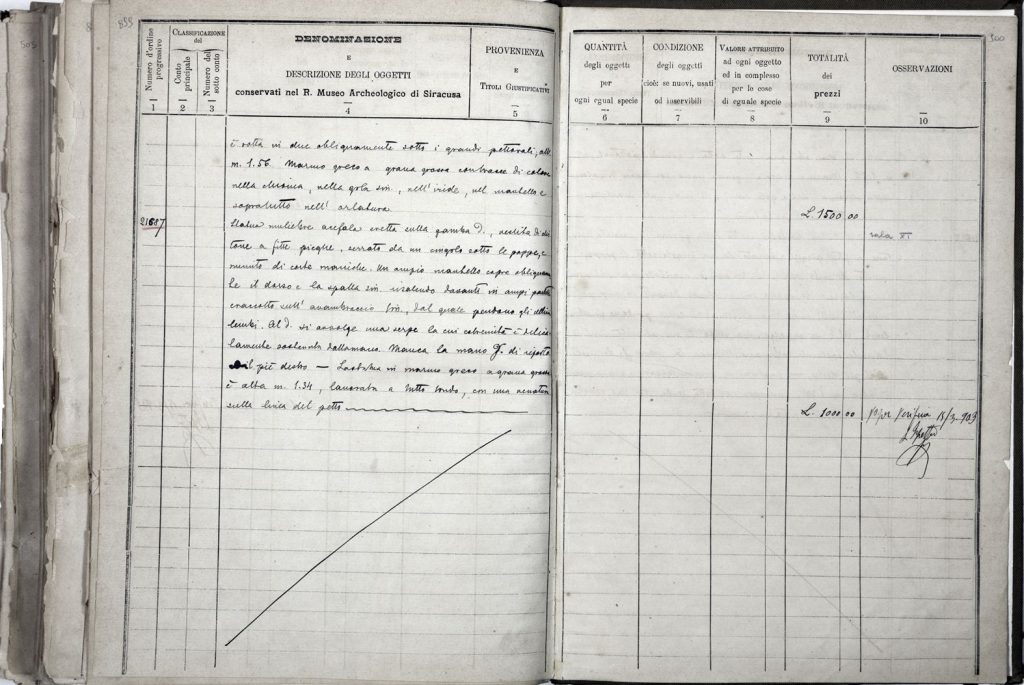 899
Numero d'ordine progressivo
1
CLASSIFICAZIONE
del
Conto principale
2
Numero del sotto conto
3
DENOMINAZIONE
E
DESCRIZIONE DEGLI OGGETTI
conservati nel R. Museo Archeologico di Siracusa
4
PROVENIENZA
E
TITOLI GIUSTIFICATIVI
5
è rotta in due obliquamente sotto i grandi pettorali; alt.
m. 1.56. Marmo greco a grana grossa con tracce di colore
nella chioma, nella gola sin., nell'iride, nel mantello e
sopratutto nell'
21687
Statua muliebre acefala eretta sulla gamba d., vestita di chi
tone a fitte pieghe, serrato da un cingolo sotto le poppe, e
munito di corte maniche. Un ampio mantello copre obliquamen
te il dorso e la spalla sin. davanti in ampi
sull'avambraccio sin., dal quale pendono gli
lembi. Al d. si avvolge una serpe la cui estremità è delica
tamente sostenuta dalla mano. Manca la mano di riposta
il piè destro — La statua in marmo greco a grana grossa
è alta m. 1.34, lavorata a tutto tondo, con una
sulla linea del petto
300
QUANTITÀ
degli oggetti
per
ogni egual specie
6
CONDIZIONE
degli oggetti
cioè: se nuovi, usati
od inservibili
7
VALORE ATTRIBUITO
ad ogni oggetto
ed in complesso
per le cose
di eguale specie
8
TOTALITÀ
dei
prezzi
9
OSSERVAZIONI
10
L. 1500 00
sala XI
L. 1000 00